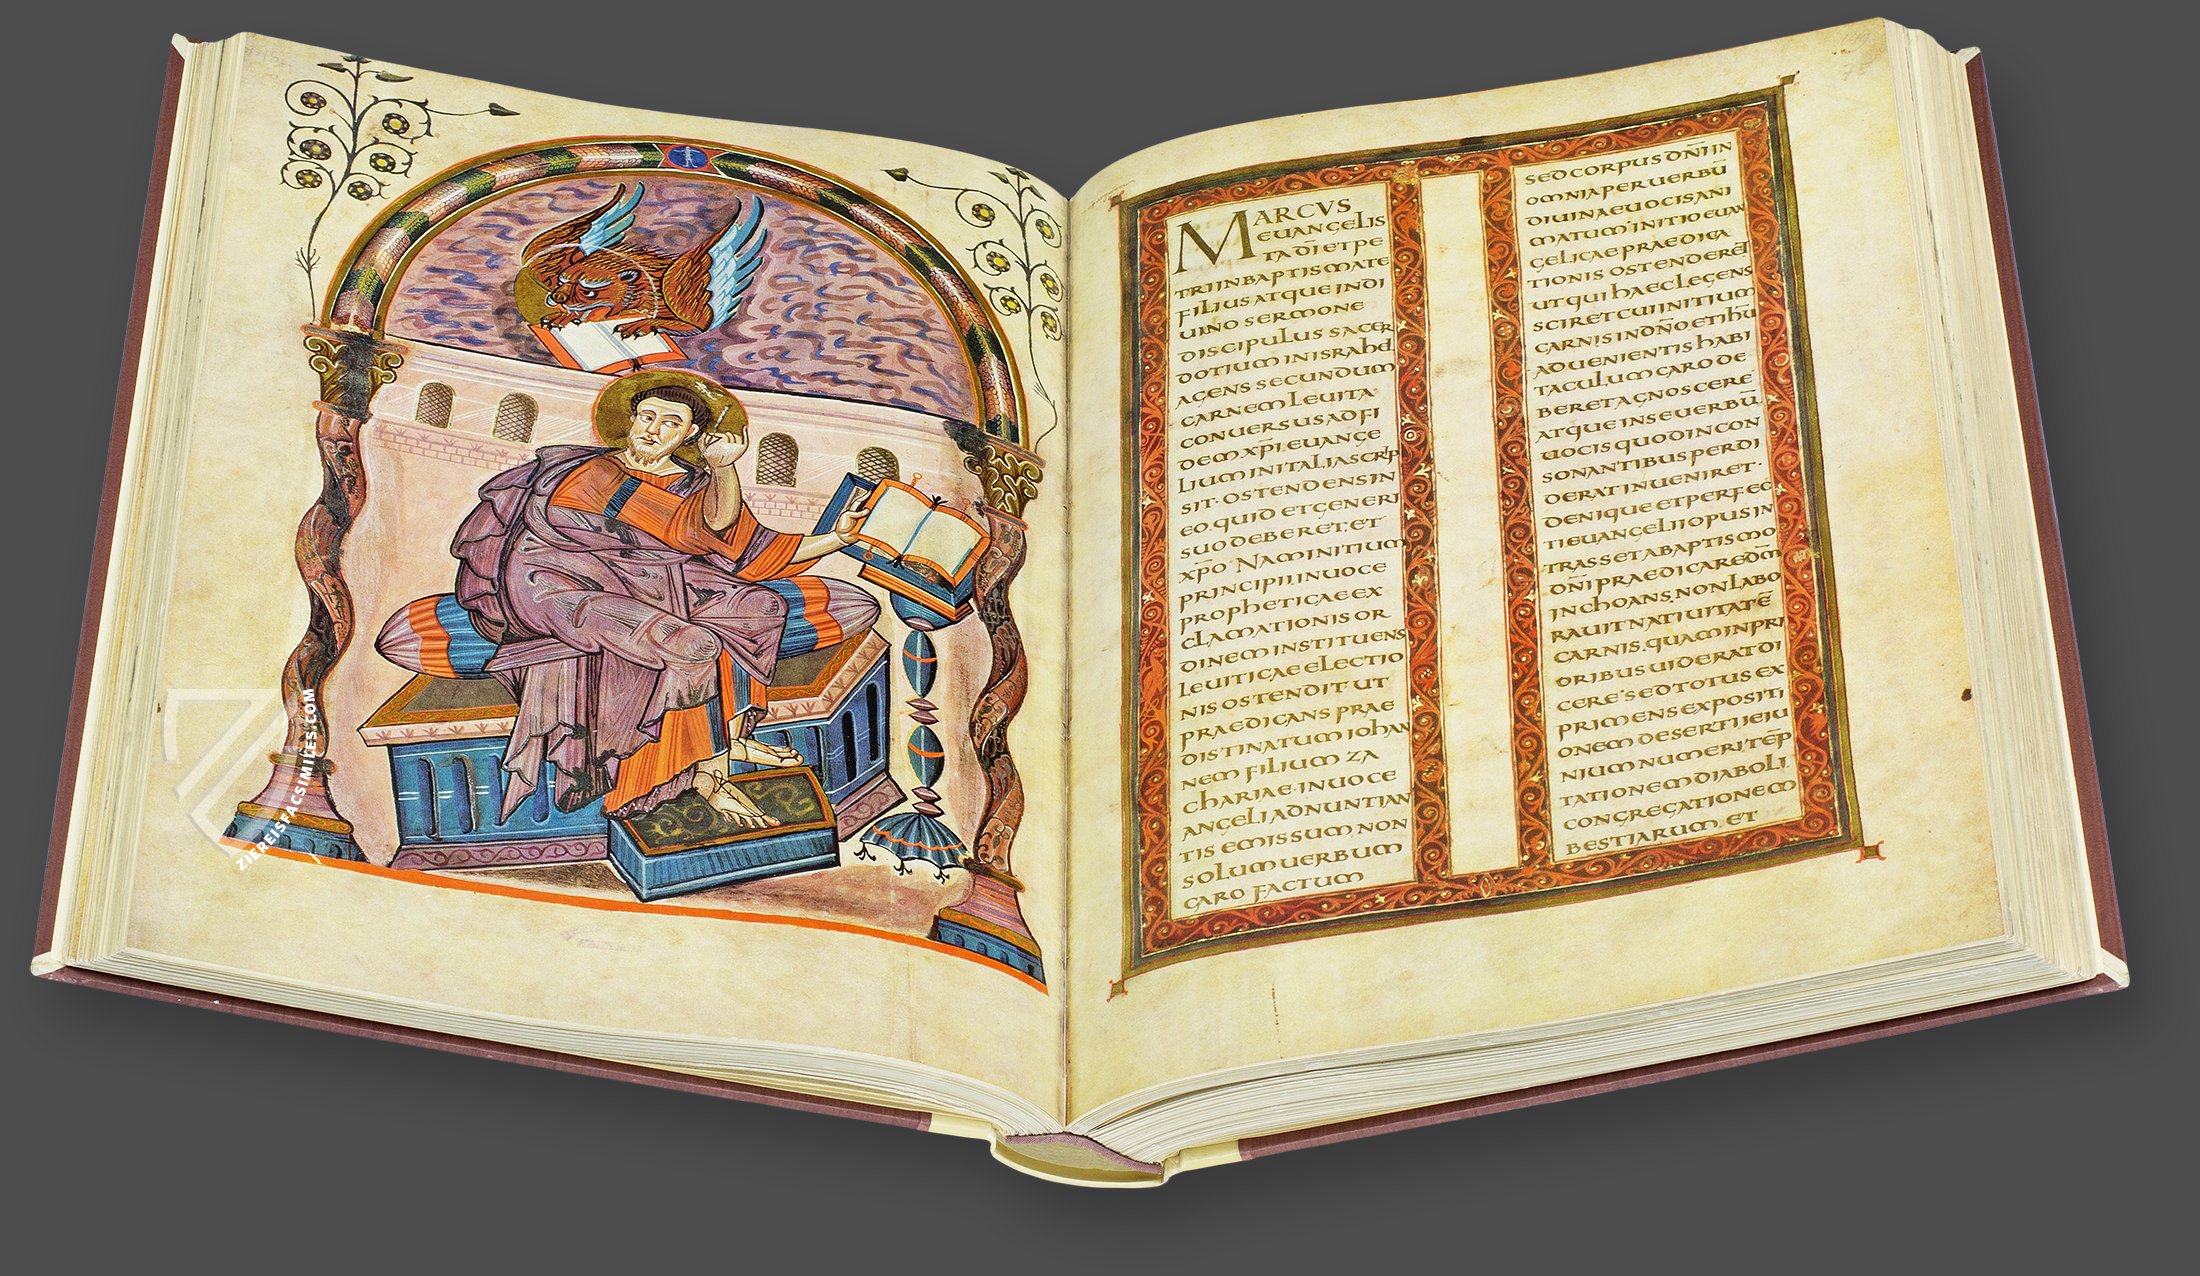 MARCVS
EUANGELIS
TA DI ET PE
TRI IN BAPTISMATE
FILIUS ATQUE IN DI
UINO SERMONE
DISCIPULUS SACER
DOTIUM IN ISRAHEL
AGENS SECUNDUM
CARNEM LEUITA
CONUERSUS AD FI
DEM XPI. EUANGE
LIUM IN ITALIA SCRIP
SIT· OSTENDENS IN
EO. QUID ET GENERI
SUO DEBERET. ET
XPO· NAM INITIUM
PRINCIPII. IN UOCE
PROPHETICAE EX
CLAMATIONIS OR
DINEM INSTITUENS
LEUITICAE ELECTIO
NIS OSTENDIT UT
PRAEDICANS PRAE
DISTINATUM IOHAN
NEM FILIUM ZA
CHARIAE· IN UOCE
ANGELI ADNUNTIAN
TIS EMISSUM NON
SOLUM UERBUM
CARO FACTUM
SED CORPUS DNI IN
OMNIA PER UERBU
DIUINAE UOCIS ANI
MATUM· INITIO EUAN
GELICAE PRAEDICA
TIONIS OSTENDERE
UT QUI HAEC LEGENS
SCIRET CUI INITIUM
CARNIS IN DNO ET IHU
ADUENIENTIS HABI
TACULUM CARO DE
BERET AGNOSCERE
ATQUE IN SE UERBU
UOCIS QUOD IN CON
SONANTIBUS PERDI
DERAT INUENIRET·
DENIQUE ET PERFEC
TI EUANGELII OPUS IN
TRASSET A BAPTISMO
DNI PRAEDICARE DM
INCHOANS. NON LABO
RAUIT NATIUITATE
CARNIS. QUAM IN PRI
ORIBUS UIDERAT DI
CERE· SED TOTUS EX
PRIMENS EXPOSITI
ONEM DESERTI IEIU
NIUM NUMERI TEP
TATIONEM DIABOLI
CONGREGATIONEM
BESTIARUM. ET
ZIEREISFACSIMILES.COM